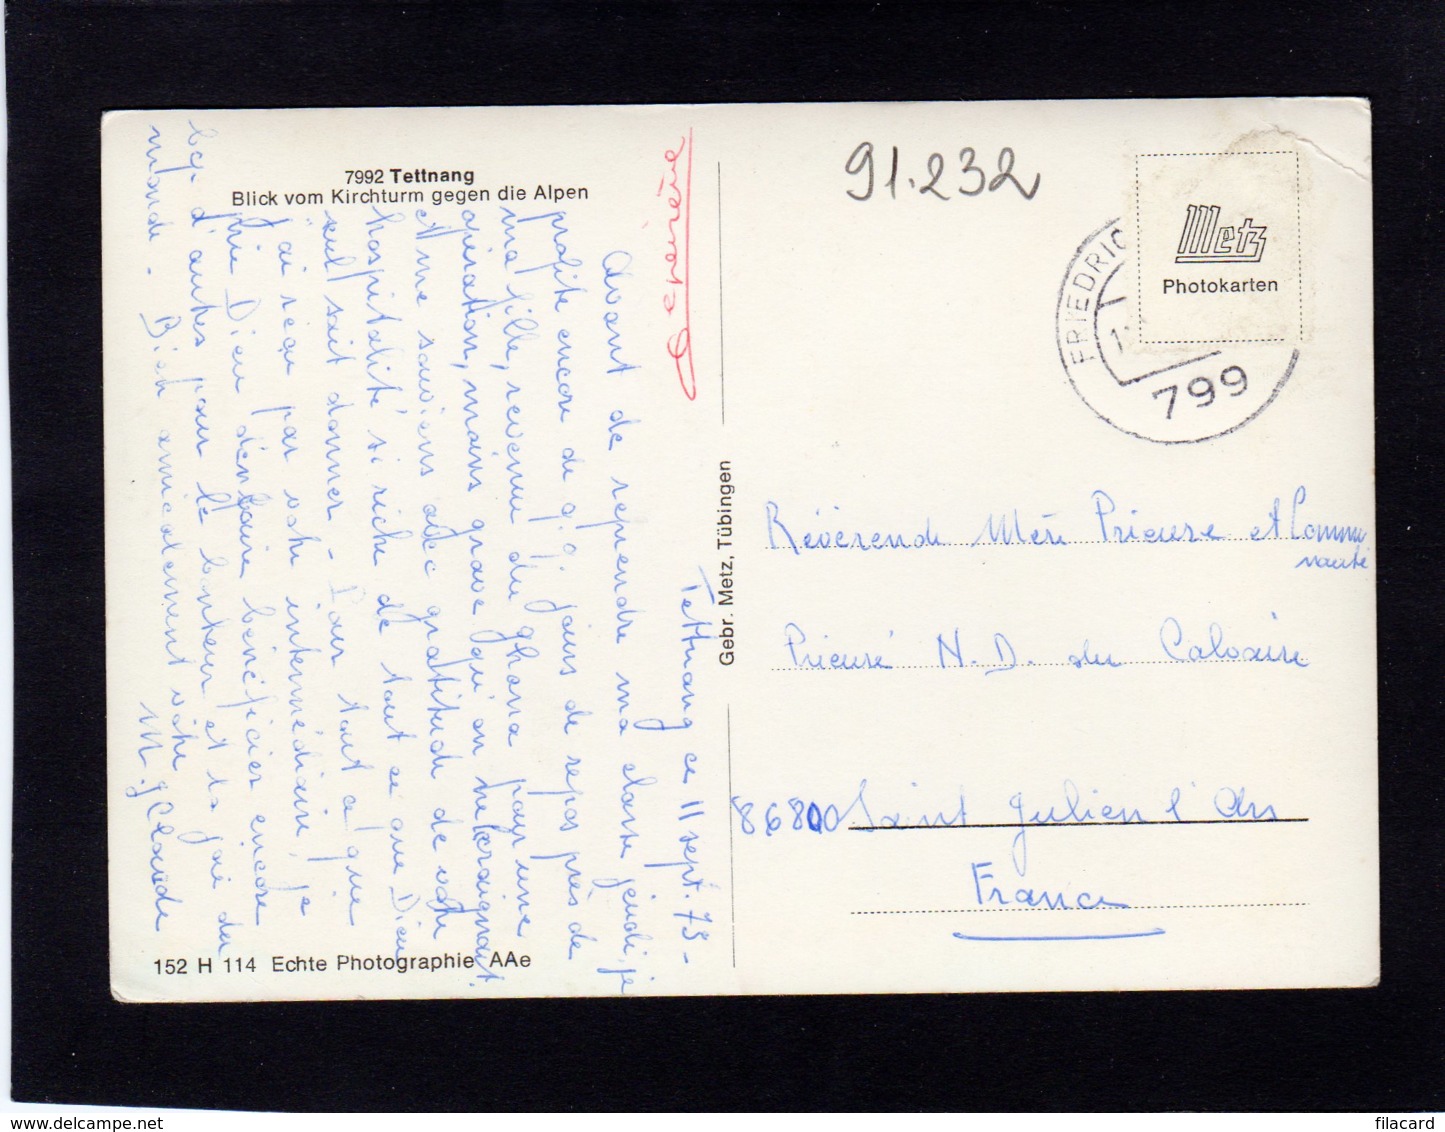 7992 Tettnang
Blick vom Kirchturm gegen die Alpen
Tettnang ce 11 sept. 73 -
Avant de reprendre ma classe jeudi, je
profite encore de q.q. jours de repos près de
ma fille, revenue du Ghana pour une
opération, moins grave qu'on ne craignait.
et me souviens avec gratitude de votre
hospitalité si riche de tout ce que Dieu
seul sait donner - Pour tout ce que
j'ai reçu par votre intermédiaire, je
prie Dieu d'en faire bénéficier encore
bcp. d'autres pour le bonheur et la joie du
monde - Bien amicalement vôtre
M. J. Claude
152 H 114 Echte Photographie AAe
Gebr. Metz, Tübingen
91.232
Metz
Photokarten
FRIEDRIC
799
Révérende Mère Prieure et Commu
nauté
Prieuré N. D. du Calvaire
86800 Saint Julien l'Ars
France